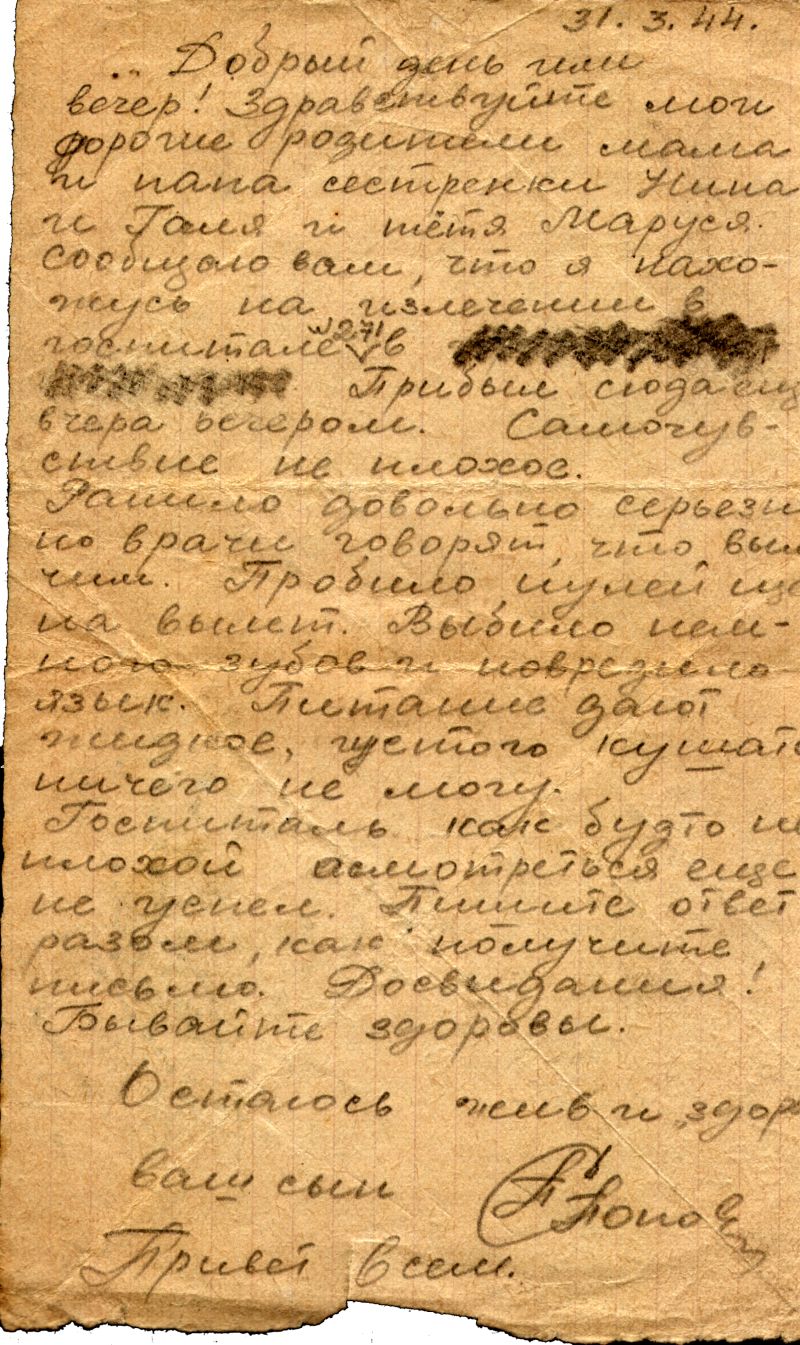 31. 3. 44.
.. Добрый день или
вечер! Здравствуйте мои
дорогие родители мама
и папа сестренки Нина
и Галя и тётя Маруся.
Сообщаю вам, что я нахо-
жусь на излечении в
госпитале 271 в
Прибыл сюда ещ
вчера вечером. Самочув-
ствие не плохое.
Ранило довольно серьезн
но врачи говорят, что выл
чим. Пробило пулей ще
на вылет. Выбило нем-
ного зубов и поврезило
язык. Питание дают
жидкое, густого кушать
ничего не могу.
Госпиталь как будто не
плохой асмотреться еще
не успел. Пишите ответ
разом, как получите
письмо. Досвидания!
Бывайте здоровы.
Остаюсь жив и здоро
ваш сын Попов
Привет всем.